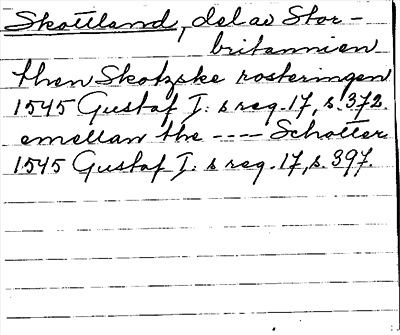 Skottland, del av Stor-
britannien
then Skotzske rosteringen
1545 Gustaf I:s reg. 17, s. 372.
emellan the ---- Schotter
1545 Gustaf I:s reg. 17, s. 397.